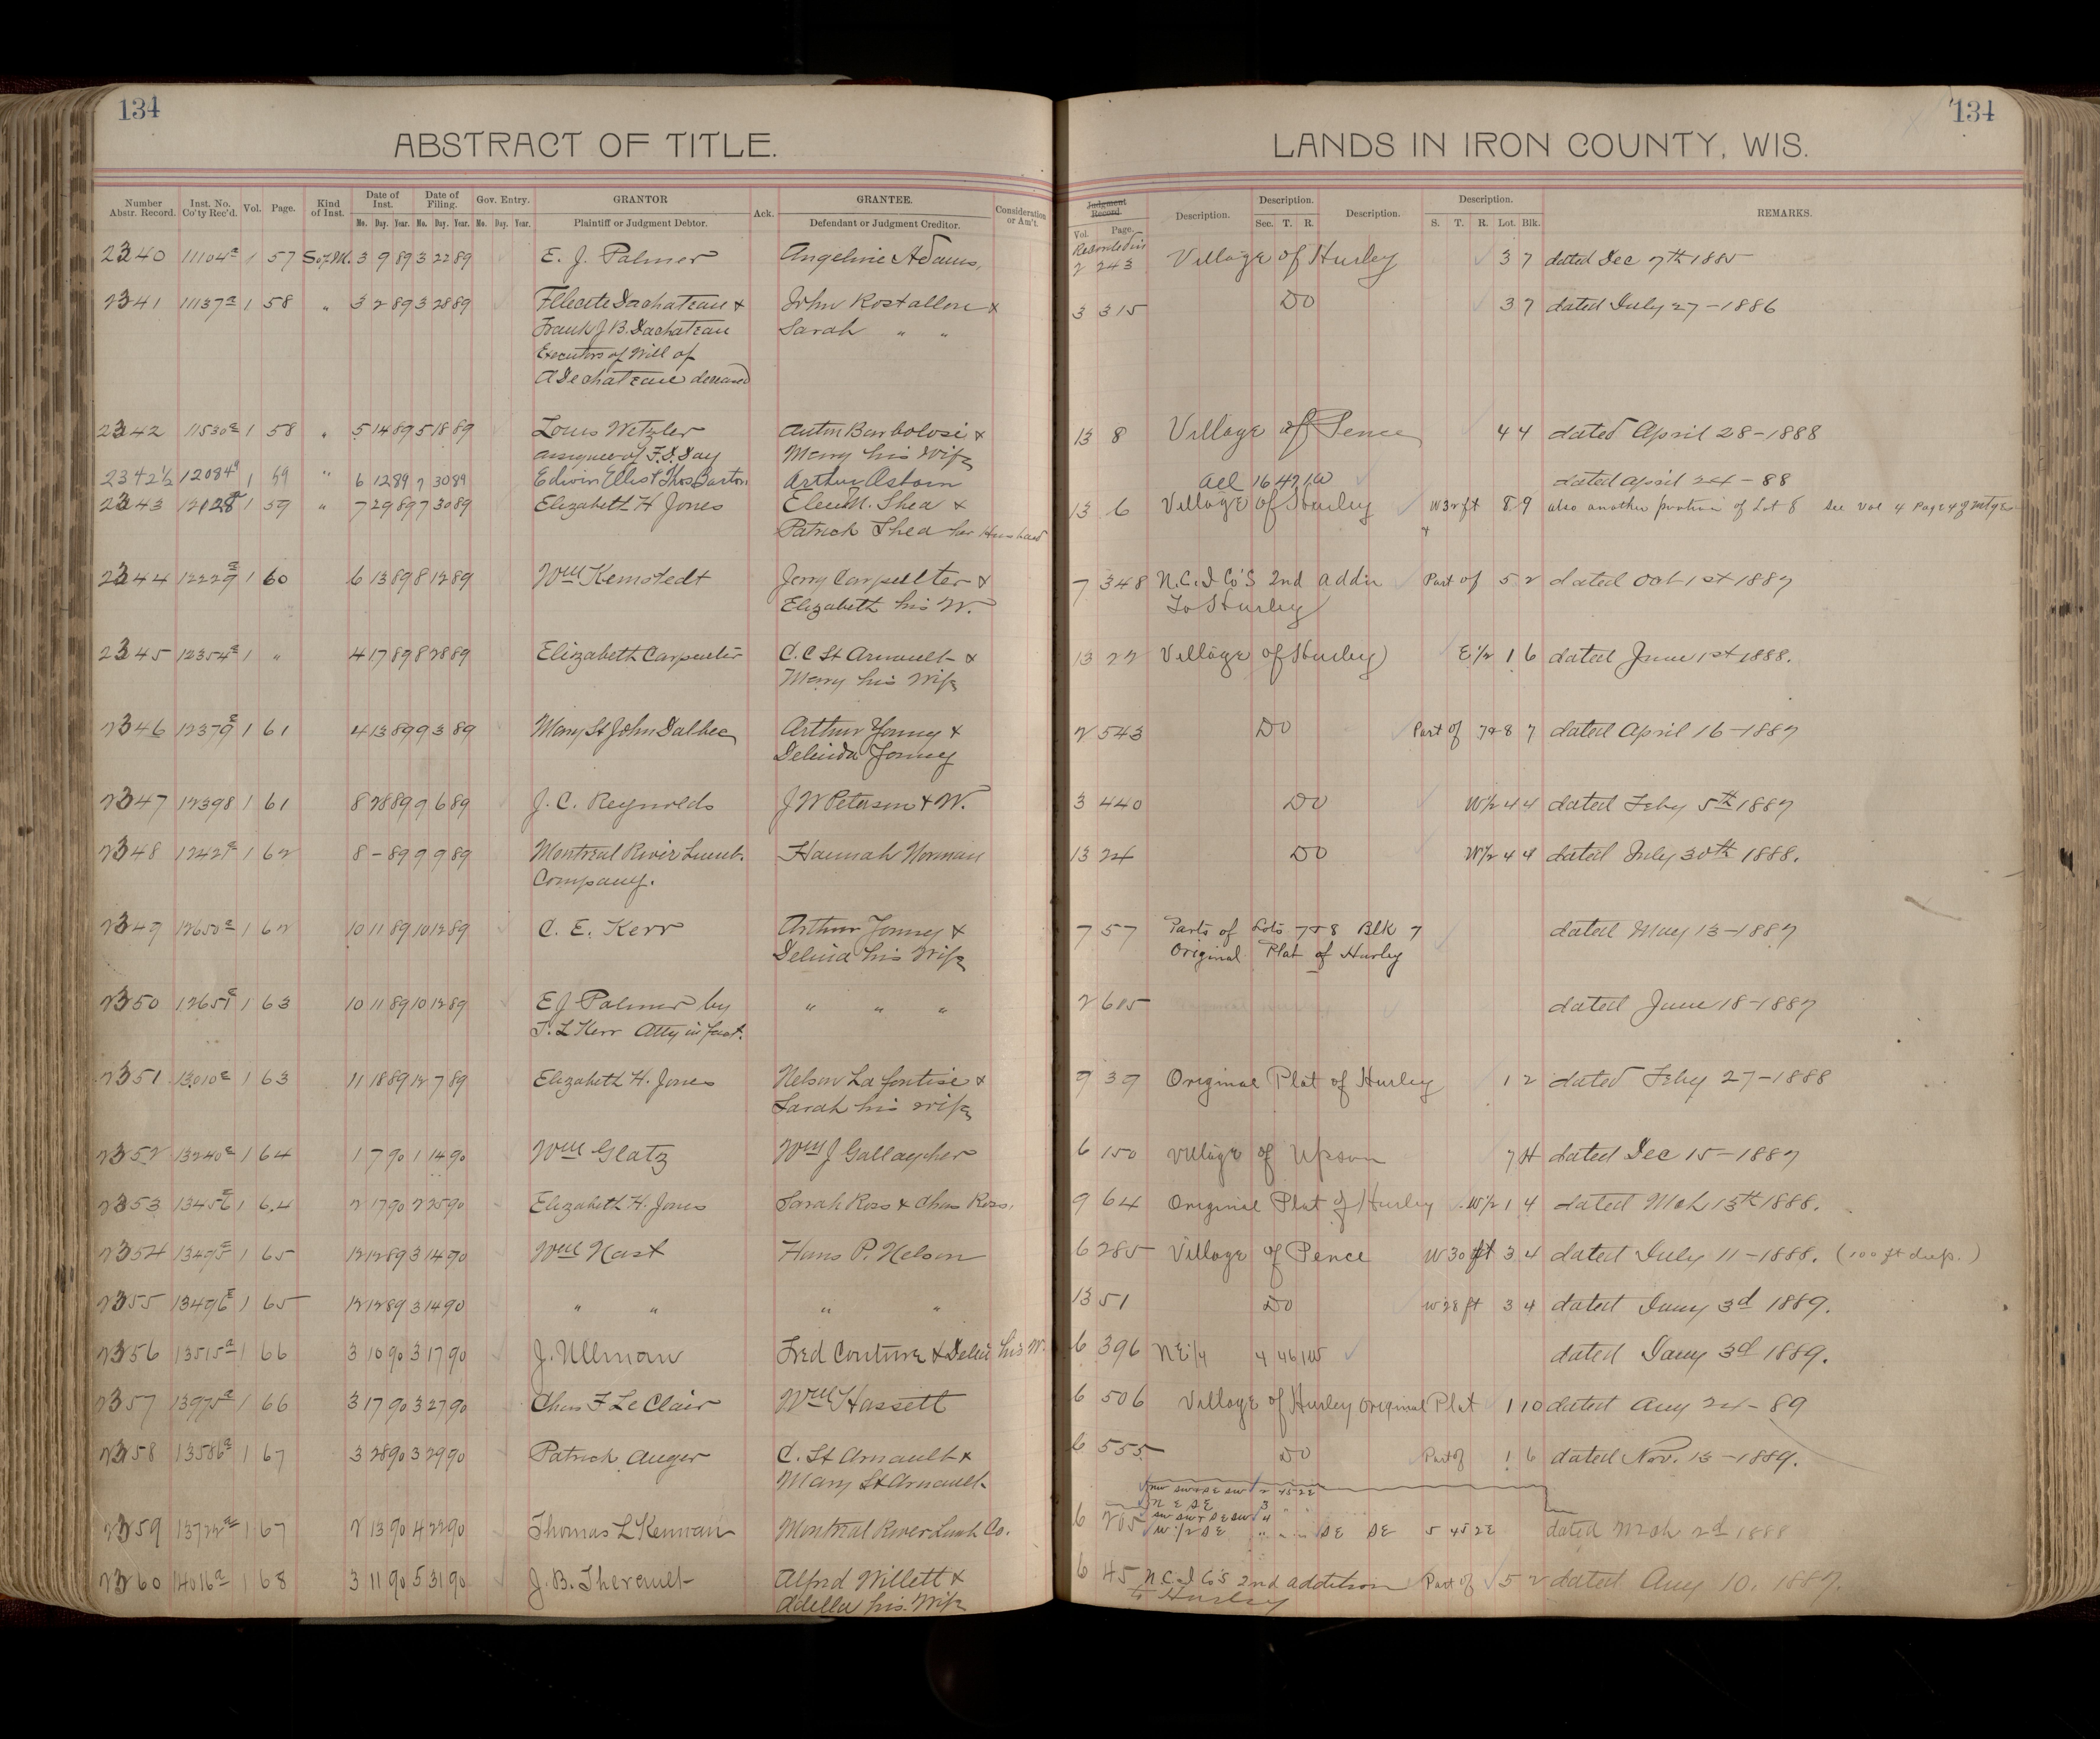 134
134
ABSTRACT OF TITLE.
LANDS IN IRON COUNTY, WIS.
Number Abstr. Record. Inst. No. Co'ty Rec'd. Vol. Page. Kind of Inst. Date of Inst. Mo. Day. Year. Date of Filing. Mo. Day. Year. Gov. Entry. Mo. Day. Year. GRANTOR Plaintiff or Judgment Debtor. Ack. GRANTEE. Defendant or Judgment Creditor. Consideration or Am't.
Judgment Record. Vol. Page. Description. Description. Sec. T. R. Description. Description. S. T. R. Lot. Blk. REMARKS.
Recorded in
2340 11104 a 1 57 S of M. 3 9 89 3 22 89 E. J. Palmer Angeline Adams, 2 243 Village of Hurley 3 7 dated Dec 7th 1885
2341 11137 a 1 58 " 3 2 89 3 28 89 & John Rostallon & 3 315 Do 3 7 dated July 27-1886
Frank J. B. Dachateau Sarah " "
Executors of Will of
deceased
2342 11530 a 1 58 " 5 14 89 5 18 89 Louis Wetzler Anton Barbolosi & 13 8 Village of Pence 4 4 dated April 28-1888
assignee of F. D. Day Mary his Wife
2342½ 12084 a 1 59 " 6 12 89 7 30 89 Edwin Ellis & Thos Barton Arthur Osborn all 16 47 1W dated april 24-88
2343 12128 a 1 59 " 7 29 89 7 30 89 Elizabeth H Jones Ellen M. Shea & 13 6 Village of Hurley W 32 ft 8 9 also another portion of Lot 8 See Vol 4 Page 4 of mtges
Patrick Shea her Husband
2344 12229 a 1 60 6 13 89 8 12 89 Wm Kemstedt Jerry Carpenter & 7 348 N.C.I Co'S 2nd addn Part of 5 2 dated Oct 1st 1887
Elizabeth his W. To Hurley
2345 12354 a 1 " 4 17 89 8 28 89 Elizabeth Carpenter C. C St Arnault & 13 22 Village of Hurley E 1/2 1 6 dated June 1st 1888.
Mary his Wife
2346 12379 a 1 61 4 13 89 9 3 89 Mary St John Dalbec Arthur & 2 543 Do Part of 7 & 8 7 dated April 16-1887
Delinda
2347 12398 1 61 8 28 89 9 6 89 J. C. Reynolds J W Peterson & W. 3 440 Do W 1/2 4 4 dated Feby 5th 1887
2348 1 62 8 - 89 9 9 89 Montreal River Lumb. Hannah Norman 13 24 Do W 1/2 4 4 dated July 30th 1888.
Company.
2349 12650 a 1 62 10 11 89 10 12 89 C. E. Kerr Arthur & 7 57 Parts of Lots 7 & 8 Blk 7 dated May 13-1887
Delina his Wife Original Plat of Hurley
2350 12651 a 1 63 10 11 89 10 12 89 E J Palmer by " " " 2 615 dated June 18-1887
T. L Kerr Atty in fact.
2351 13010 a 1 63 11 18 89 12 7 89 Elizabeth H. Jones Nelson La fontise & 9 39 Original Plat of Hurley 1 2 dated Feby 27-1888
Sarah his wife
2352 13240 a 1 64 1 7 90 1 14 90 Wm Glatz Wm J Gallagher 6 150 Village of Upson 7 H dated Dec 15-1887
2353 13456 a 1 64 2 17 90 2 25 90 Elizabeth H. Jones Sarah Ross & Chas Ross. 9 64 Original Plat of Hurley W 1/2 1 4 dated Mch 13th 1888.
2354 13495 a 1 65 12 12 89 3 14 90 Wm Nast Hans P. Nelson 6 285 Village of Pence W 30 ft 3 4 dated July 11-1888. (100 ft deep.)
2355 13496 a 1 65 12 12 89 3 14 90 " " " " 13 51 Do W 28 ft 3 4 dated Jany 3d 1889.
2356 13515 a 1 66 3 10 90 3 17 90 J. Ullman Fred Couture & his W. 6 396 NE 1/4 4 46 1W dated Jany 3d 1889.
2357 13975 a 1 66 3 17 90 3 27 90 Chas F Le Clair Wm Hassett 6 506 Village of Hurley Original Plat 1 10 dated Aug 24-89
2358 13586 a 1 67 3 28 90 3 29 90 Patrick Auger C. St Arnault & 6 555 Do Part of 1 6 dated Nov. 13-1889.
Mary St Arnault.
nw sw & se sw 2 45 2E
N E SE 3 " "
sw sw & se sw 4
2359 13722 a 1 67 2 13 90 4 22 90 Thomas L Kennan Montreal River Lumb Co. 6 205 W 1/2 SE " " " SE SE 5 45 2E dated Mch 2d 1888
2360 14016 a 1 68 3 11 90 5 31 90 J. B. Therault Alfred Willett & 6 45 N.C.I Co's 2nd addition Part of 5 2 dated Aug 10. 1887.
Adella his Wife to Hurley